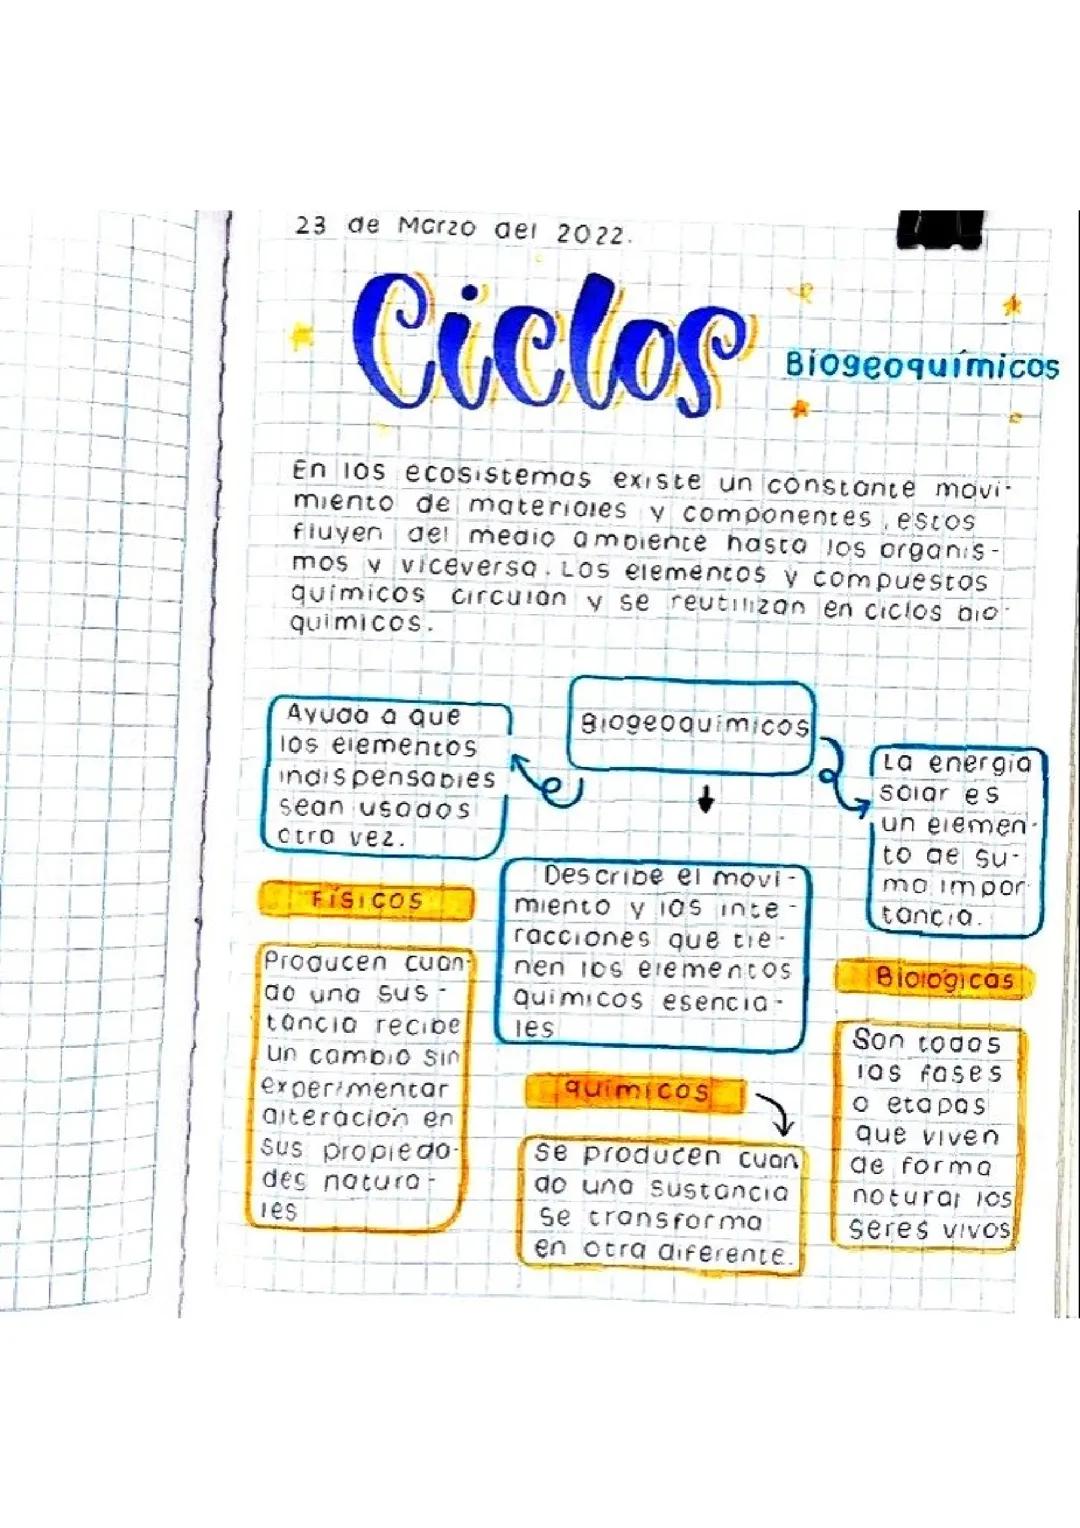 23 de Marzo del 2022.
Ciclos
Biogeoquímicos
En los ecosistemas existe un constante movi-
miento de materiales y componentes, estos
fluyen del medio ambiente hasta los organis-
mos y viceversa. Los elementos y compuestos
químicos circulan y se reutilizan en ciclos bio-
químicos.
Biogeoquimicos
Ayuda a que
los elementos
indispensables
sean usados
otra vez.
La energia
solar es
un elemen-
to de su-
ma impor
tancia.
Describe el movi-
miento y las inte-
racciones que tie-
nen los elementos
químicos esencia-
les
Físicos
Producen cuan-
do una sus-
tancia recibe
un cambio sin
experimentar
alteración en
sus propieda-
des natura-
les
químicos
Se producen cuan
do una sustancia
se transforma
en otra diferente.
Biológicas
Son todas
las fases
o etapas
que viven
de forma
natural los
seres vivos